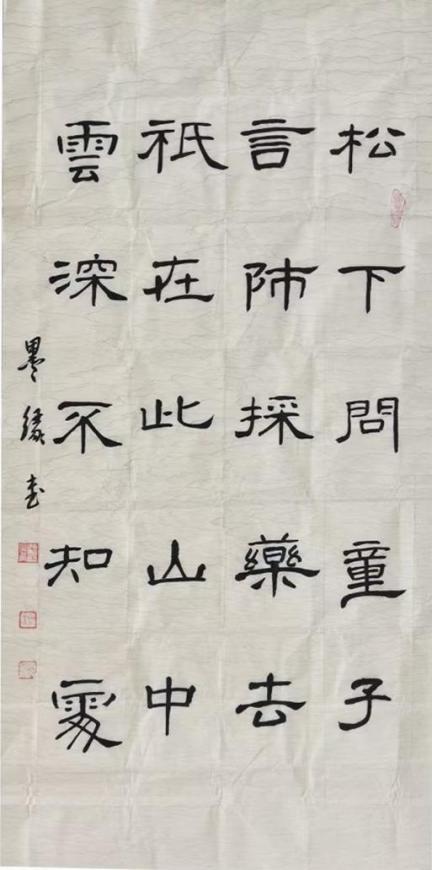 松下問童子
言師採藥去
祇在此山中
雲深不知處
墨緣書